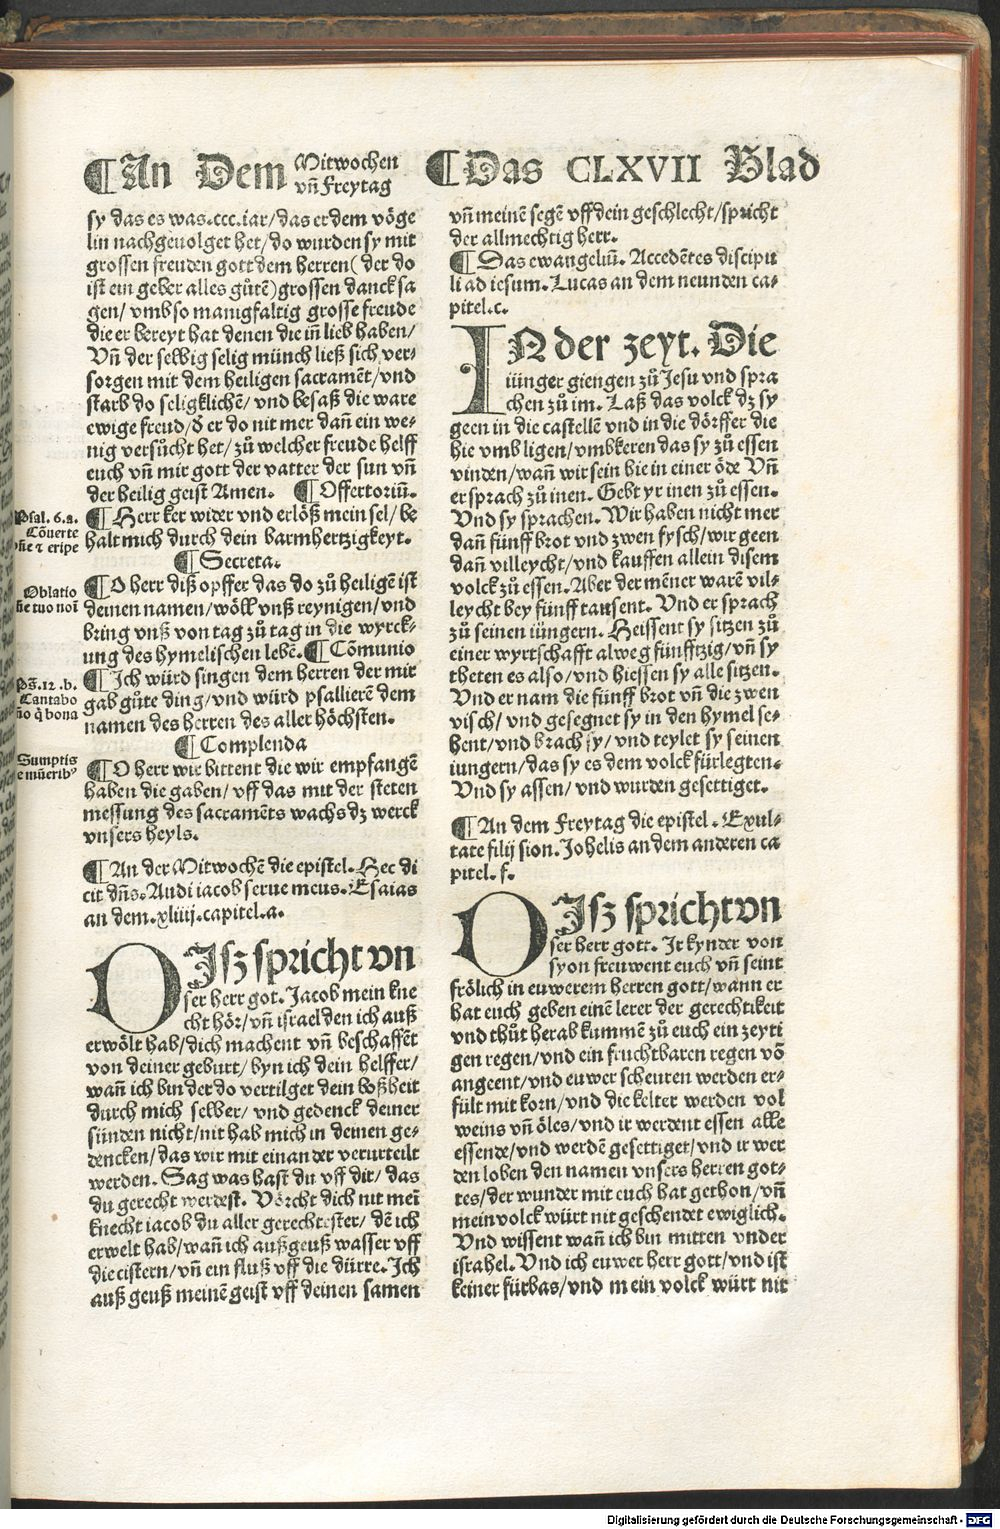 ¶An Dem Mitwochen
vñ Freytag
¶Das CLXVII Blad
sy das es was.ccc.iar/das er dem vöge
lin nachgeuolget het/do wurden sy mit
grossen freuden gott dem herren( der do
ist ein geber alles gůtẽ)grossen danck sa
gen/ vmb so manigfaltig grosse freude
die er bereyt hat denen die in̄ lieb haben/
Vñ der selbig selig münch ließ sich ver⸗
sorgen mit dem heiligen sacramẽt/vnd
starb do seligklichẽ/ vnd besaß die ware
ewige freud/ð er do nit mer dañ ein we⸗
nig versůcht het/ zů welcher freude helff
euch vñ mir gott der vatter der sun vñ
der heilig geist Amen. ¶Offertoriū.
¶Herr ker wider vnd erlöß mein sel/ be
halt mich durch dein barmhertzigkeyt.
¶Secreta.
¶O herr diß opffer das do zů heiligẽ ist
deinen namen/wöll vnß reynigen/vnd
bring vnß von tag zů tag in die wyrck⸗
ung des hymelischen lebẽ.¶Cõmunio
¶Ich würd singen dem herren der mir
gab gůte ding/vnd würd psallierẽ dem
namen des herren des aller höchsten.
¶Complenda
¶O herr wir bittent die wir empfangẽ
haben die gaben/ vff das mit der steten
messung des sacramẽts wachs dz werck
vnsers heyls.
¶An der Mitwochẽ die epistel. Hec di
cit dñs. Audi iacob serue meus. Esaias
an dem.xliiij.capitel.a.
DIsz spricht vn
ser herr got. Jacob mein kne
cht hör/vñ israel den ich auß
erwölt hab/dich machent vñ beschaffẽt
von deiner geburt/ byn ich dein helffer/
wañ ich bin der do vertilget dein boßheit
durch mich selber/ vnd gedenck deiner
sünden nicht/nit hab mich in deinen ge⸗
dencken/das wir mit einander verurteilt
werden. Sag was hast du vff dir/ das
du gerecht werdest. Vörcht dich nit mein̄
knecht iacob du aller gerechtester/ dẽ ich
erwelt hab/wañ ich außgeuß wasser vff
die cistern/vñ ein fluß vff die dürre. Ich
auß geuß meinẽ geist vff deinen samen
Psal. 6.a.
Cõuerte
dñe ⁊ eripe
Oblatio
dñe tuo noĩ
Ps̃.12.b.
Cantabo
dño q̃ bona
Sumptis
vñ meinẽ segẽ vff dein geschlecht/spricht
der allmechtig herr.
¶Das ewangeliū. Accedẽtes discipu
li ad iesum. Lucas an dem neunden ca⸗
pitel.c.
IN der zeyt. Die
iünger giengen zů Jesu vnd spra
chen zů im. Laß das volck dz sy
geen in die castellẽ vnd in die dörffer die
hie vmb ligen/vmbkeren das sy zů essen
vinden/wañ wir sein hie in einer öde Vñ
er sprach zů inen. Gebt yr inen zů essen.
Vnd sy sprachen. Wir haben nicht mer
dañ fünff brot vnd zwen fysch/wir geen
dañ villeycht/vnd kauffen allein disem
volck zů essen. Aber der mẽner warẽ vil⸗
leycht bey fünff tausent. Vnd er sprach
zů seinen iüngern. Heissent sy sitzen zů
einer wyrtschafft alweg fünfftzig/vñ sy
theten es also/vnd hiessen sy alle sitzen.
Vnd er nam die fünff brot vñ die zwen
visch/ vnd gesegnet sy in den hymel se⸗
hent/vnd brach sy/vnd teylet sy seinen
iungern/das sy es dem volck fürlegten.
Vnd sy assen/ vnd wurden gesettiget.
¶An dem Freytag die epistel. Exul⸗
tate filij sion. Johelis an dem anderen ca
pitel.f.
DIsz spricht vn
ser herr gott. Ir kynder von
syon freuwent euch vñ seint
frölich in euwerem herren gott/wann er
hat euch geben einẽ lerer der gerechtikeit
vnd thůt herab kummẽ zů euch ein zeyti
gen regen/vnd ein fruchtbaren regen võ
angeent/vnd euwer scheuren werden er⸗
fült mit korn/vnd die kelter werden vol
weins vñ öles/vnd ir werdent essen alle
essende/vnd werdẽ gesettiget/vnd ir wer
den loben den namen vnsers herren got⸗
tes/der wunder mit euch hat gethon/vñ
mein volck würt nit geschendet ewiglich.
Vnd wissent wañ ich bin mitten vnder
israhel. Vnd ich euwer herr gott/vnd ist
keiner fürbas/vnd mein volck würt nit
Digitalisierung gefördert durch die Deutsche Forschungsgemeinschaft - DFG